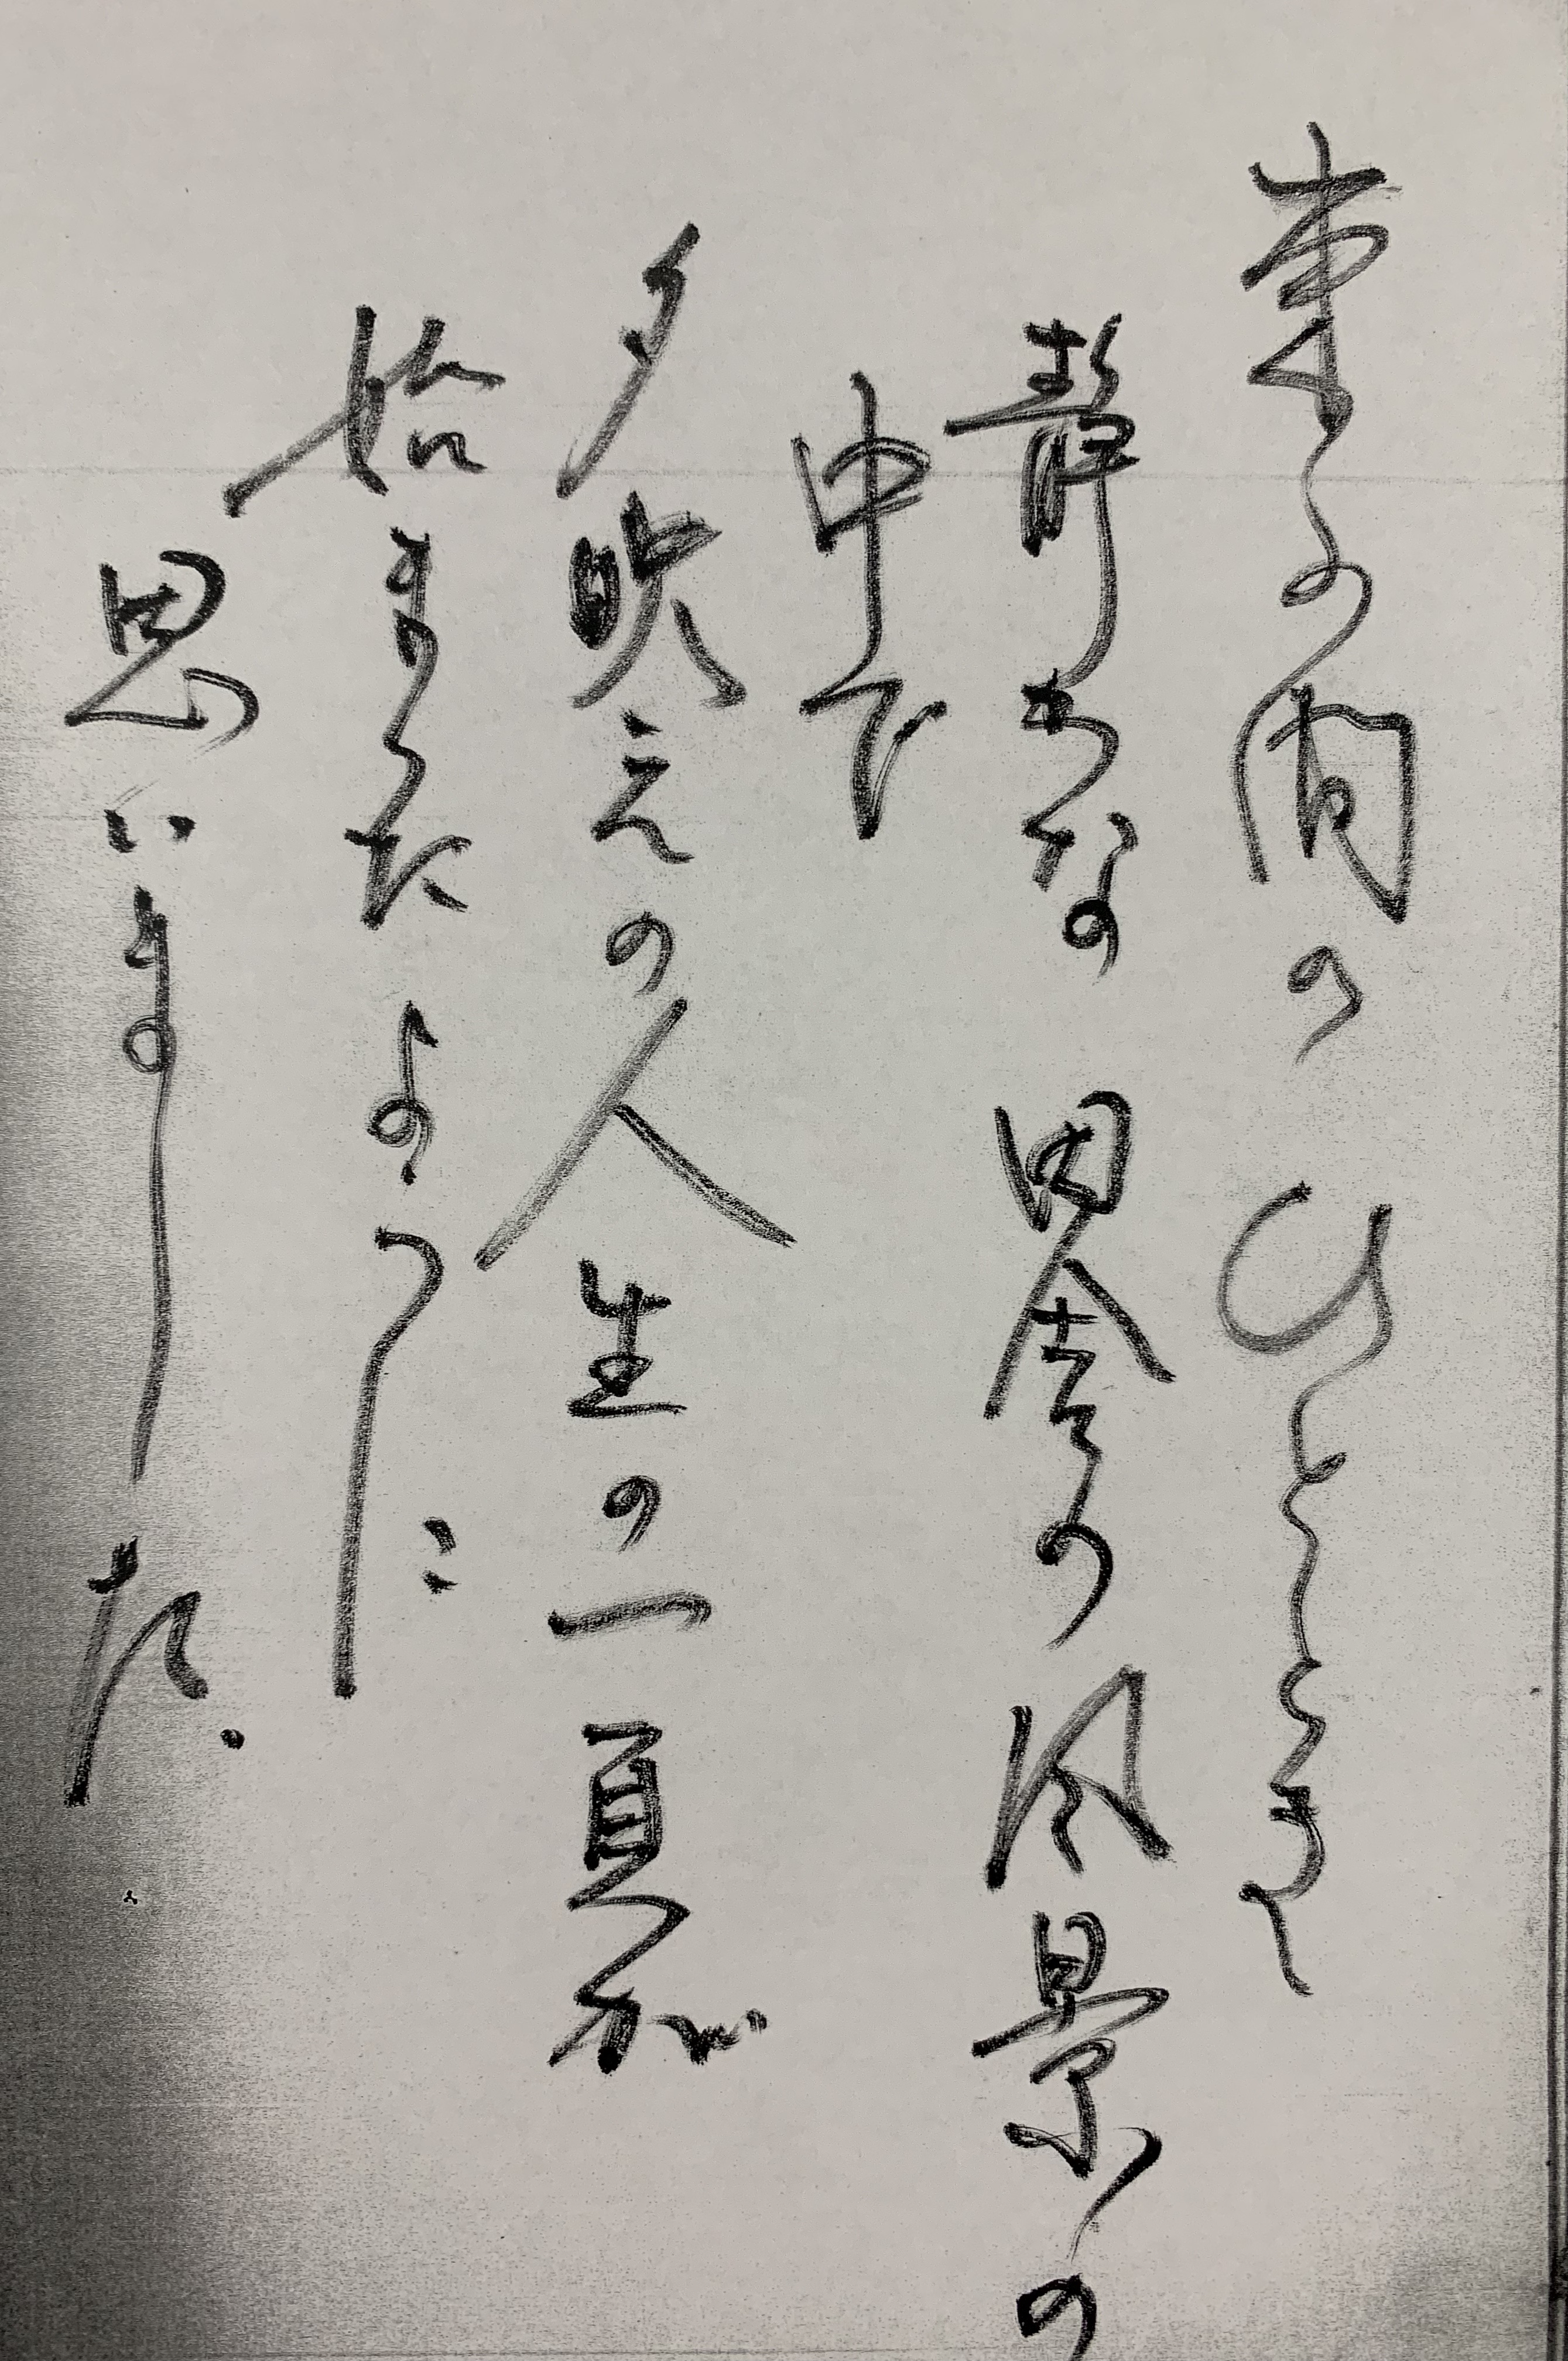 束の間のひととき
静かな田舎の風景の
中で
夕映えの人生の一頁が
始まったように
思いました.